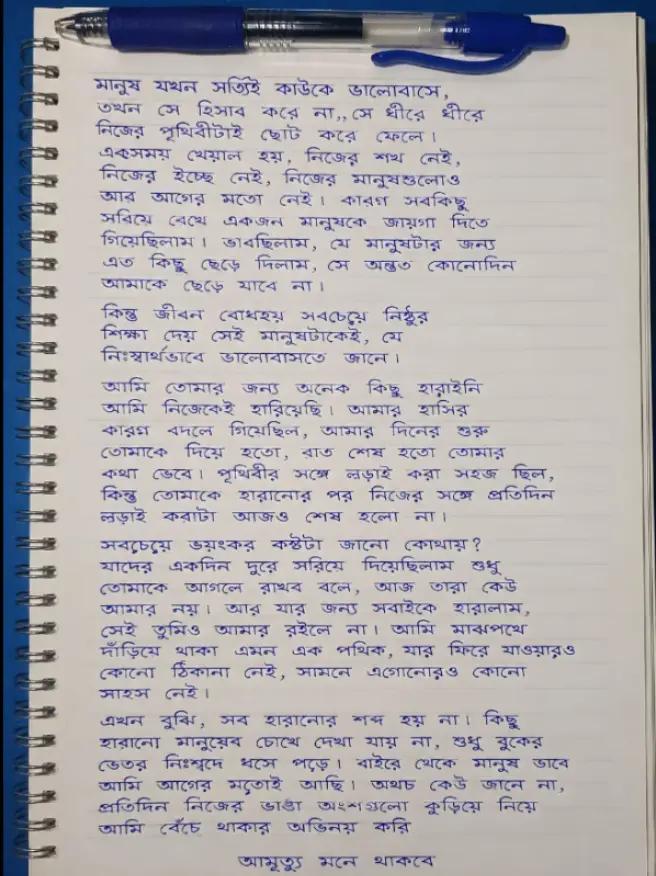 মানুষ যখন সত্যিই কাউকে ভালোবাসে,
তখন সে হিসাব করে না,, সে ধীরে ধীরে
নিজের পৃথিবীটাই ছোট করে ফেলে।
একসময় খেয়াল হয়, নিজের শখ নেই,
নিজের ইচ্ছে নেই, নিজের মানুষগুলোও
আর আগের মতো নেই। কারণ সবকিছু
সরিয়ে রেখে একজন মানুষকে জায়গা দিতে
গিয়েছিলাম। ভাবছিলাম, যে মানুষটার জন্য
এত কিছু ছেড়ে দিলাম, সে অন্তত কোনোদিন
আমাকে ছেড়ে যাবে না।
কিন্তু জীবন বোধহয় সবচেয়ে নিষ্ঠুর
শিক্ষা দেয় সেই মানুষটাকেই, যে
নিঃস্বার্থভাবে ভালোবাসতে জানে।
আমি তোমার জন্য অনেক কিছু হারাইনি
আমি নিজেকেই হারিয়েছি। আমার হাসির
কারণ বদলে গিয়েছিল, আমার দিনের শুরু
তোমাকে দিয়ে হতো, রাত শেষ হতো তোমার
কথা ভেবে। পৃথিবীর সঙ্গে লড়াই করা সহজ ছিল,
কিন্তু তোমাকে হারানোর পর নিজের সঙ্গে প্রতিদিন
লড়াই করাটা আজও শেষ হলো না।
সবচেয়ে ভয়ংকর কষ্টটা জানো কোথায়?
যাদের একদিন দূরে সরিয়ে দিয়েছিলাম শুধু
তোমাকে আগলে রাখব বলে, আজ তারা কেউ
আমার নয়। আর যার জন্য সবাইকে হারালাম,
সেই তুমিও আমার রইলে না। আমি মাঝপথে
দাঁড়িয়ে থাকা এমন এক পথিক, যার ফিরে যাওয়ারও
কোনো ঠিকানা নেই, সামনে এগোনোরও কোনো
সাহস নেই।
এখন বুঝি, সব হারানোর শব্দ হয় না। কিছু
হারানো মানুষের চোখে দেখা যায় না, শুধু বুকের
ভেতর নিঃশ্বদে ধসে পড়ে। বাইরে থেকে মানুষ ভাবে
আমি আগের মতোই আছি। অথচ কেউ জানে না,
প্রতিদিন নিজের ভাঙা অংশগুলো কুড়িয়ে নিয়ে
আমি বেঁচে থাকার অভিনয় করি
আমৃত্যু মনে থাকবে